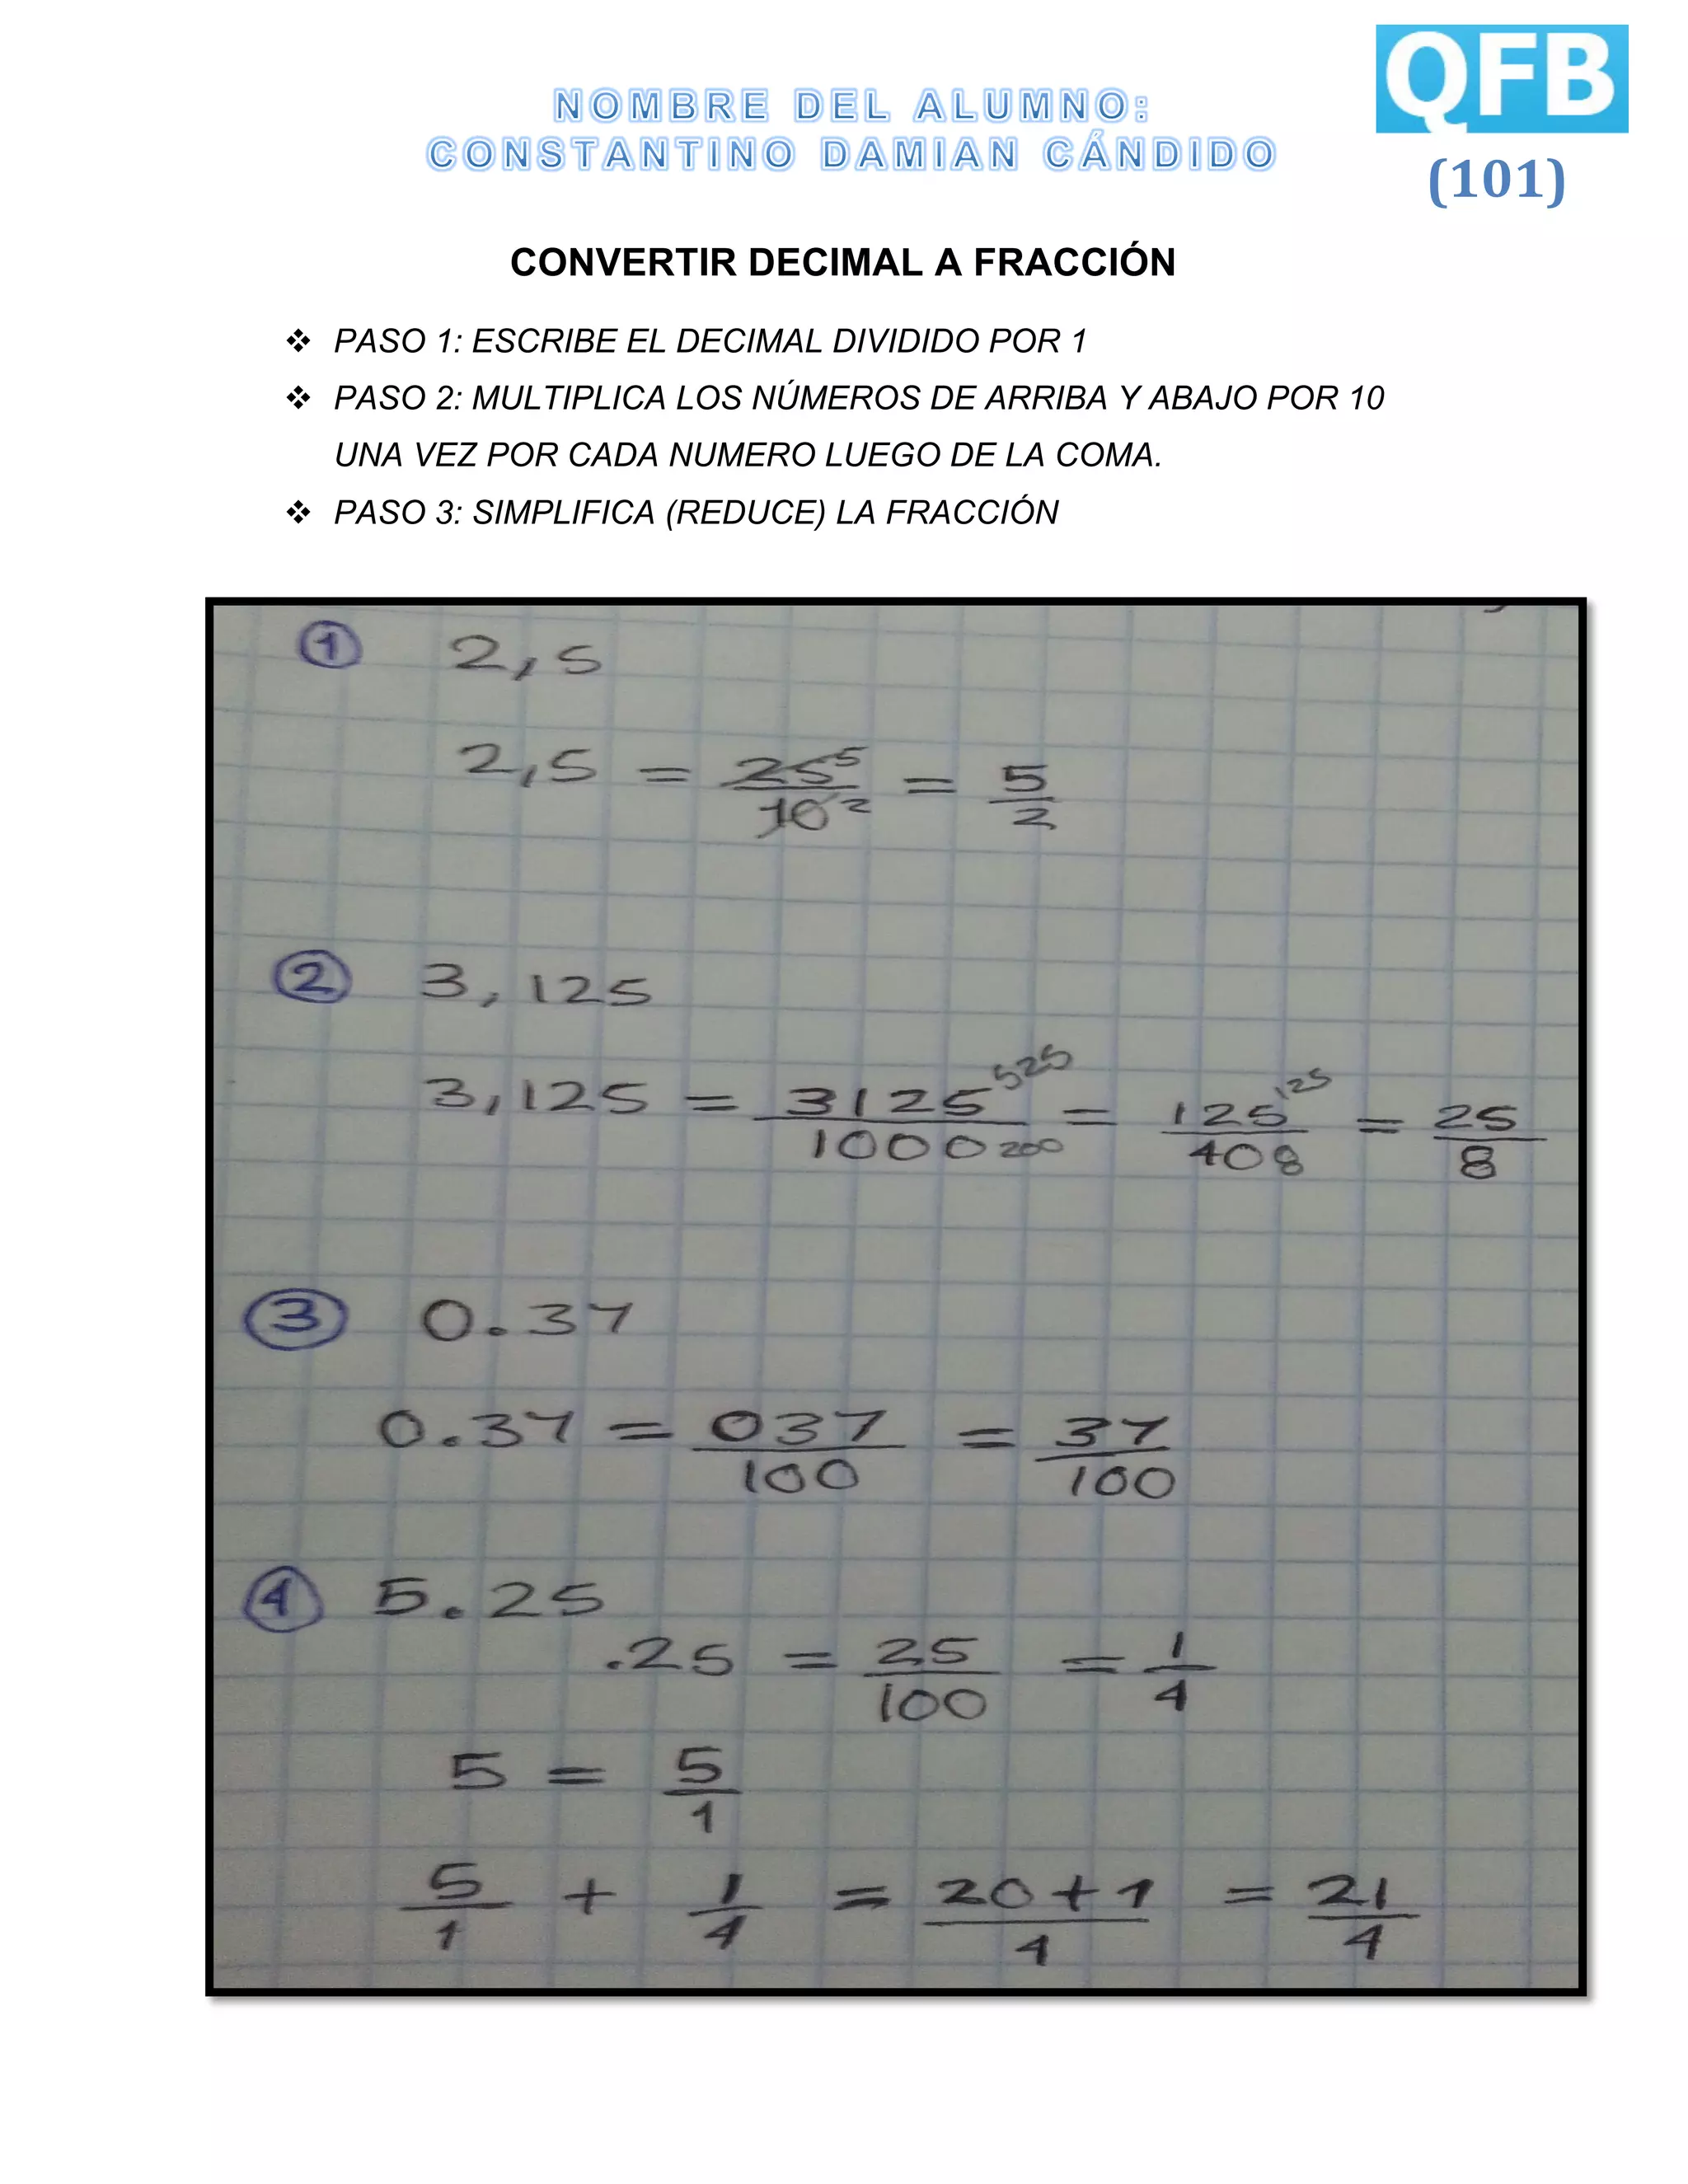 QFB
NOMBRE DEL ALUMNO:
CONSTANTINO DAMIAN CÁNDIDO
(101)
CONVERTIR DECIMAL A FRACCIÓN
❖ PASO 1: ESCRIBE EL DECIMAL DIVIDIDO POR 1
❖ PASO 2: MULTIPLICA LOS NÚMEROS DE ARRIBA Y ABAJO POR 10
UNA VEZ POR CADA NUMERO LUEGO DE LA COMA.
❖ PASO 3: SIMPLIFICA (REDUCE) LA FRACCIÓN
1 2,5
2,5 = 25 5 / 10 2 = 5/2
2 3,125
3,125 = 3125 525 / 1000 200 = 125 125 / 408 = 25/8
3 0.37
0.37 = 037/100 = 37/100
4 5.25
.25 = 25/100 = 1/4
5 = 5/1
5/1 + 1/4 = 20+1/4 = 21/4